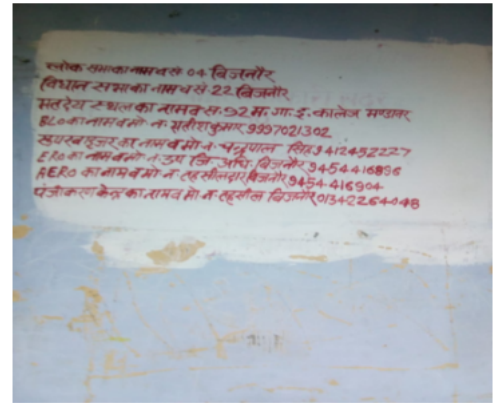 लोक सभा का नाम व सं 04 बिजनौर
विधान सभा का नाम व सं 22 बिजनौर
मतदेय स्थल का नाम व सं. 92 म. गा. इ. कालेज मण्डावर
BLO का नाम व मो न. कुमार 9997021302
सुपरवाइजर का नाम व मो न. चन्द्रपाल सिंह 9412452227
ERO का नाम व मो न. उप जि. अधि. बिजनौर 9454416896
AERO का नाम व मो न तहसीलदार बिजनौर 9454416904
पंजीकरण केन्द्र का नाम व मो न तहसील बिजनौर 01342264048